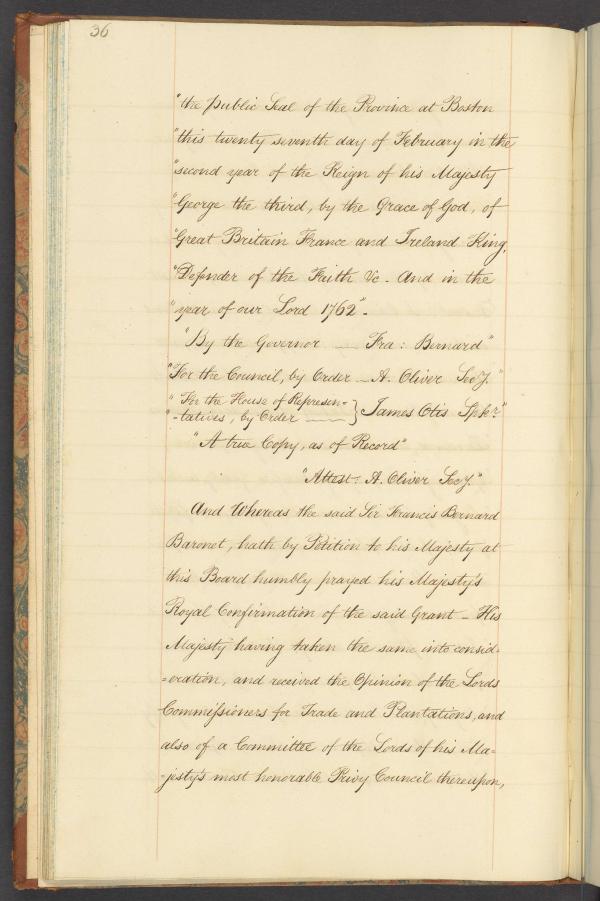 36
"the public Seal of the Province at Boston
"this twenty seventh day of February in the
"second year of the Reign of his Majesty
"George the third, by the Grace of God, of
"Great Britain France and Ireland King,
"Defender of the Faith &c - And in the
"year of our Lord 1762" -
"By the Governor — Fra: Bernard"
"For the Council, by Order — A. Oliver Secy."
"For the House of Represen-
"-tatives, by Order — } James Otis Spkr."
"A true Copy, as of Record"
"Attest: A. Oliver Secy."
And Whereas the said Sir Francis Bernard
Baronet, hath by Petition to his Majesty at
this Board humbly prayed his Majesty's
Royal Confirmation of the said Grant - His
Majesty having taken the same into consid-
-eration, and received the Opinion of the Lords
Commissioners for Trade and Plantations, and
also of a Committee of the Lords of his Ma-
-jesty's most honorable Privy Council thereupon,